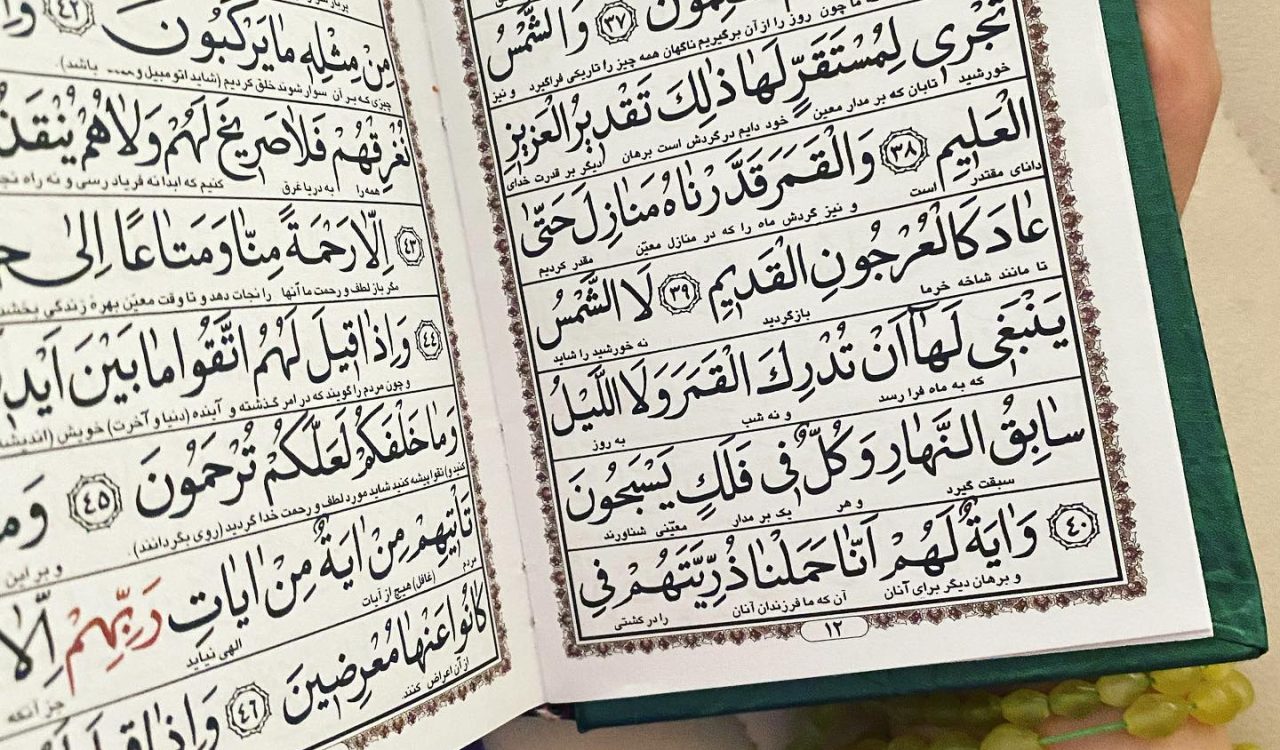 ﻠِﻤُﻮنَ ﴿٣٧﴾ وَالشَّمْسُ
ما چون روز را از آن برگیریم ناگهان همه چیز را تاریکی فراگیرد و نیز
تَجْرى لِمُسْتَقَرٍّ لَها ذٰلِكَ تَقْديرُ الْعَزيزِ
خورشید تابان که بر مدار معین خود دایم در گردش است برهان دیگر بر قدرت خدای
الْعَليمِ ﴿٣٨﴾ وَالْقَمَرَ قَدَّرْناهُ مَنازِلَ حَتّى
دانای مقتدر است و نیز گردش ماه را که در منازل معیّن مقدر کردیم
عادَ كَالْعُرْجُونِ الْقَديمِ ﴿٣٩﴾ لَا الشَّمْسُ
تا مانند شاخه خرما بازگردید نه خورشید را شاید
يَنْبَغى لَها اَنْ تُدْرِكَ الْقَمَرَ وَلَا اللَّيْلُ
که به ماه فرا رسد و نه شب به روز
سابِقُ النَّهارِ وَكُلٌّ فى فَلَكٍ يَسْبَحُونَ
سبقت گیرد و هر یک بر مدار معیّنی شناورند
﴿٤٠﴾ وَايَةٌ لَهُمْ اَنّا حَمَلْنا ذُرِّيَّتَهُمْ فِى
و برهان دیگر برای آنان آن که ما فرزندان آنان را در کشتی
١٢
﴿٤٢﴾
مِنْ مِثْلِه ما يَرْكَبُونَ
چیزی که بر آن سوار شوند خلق کردیم (شاید اتومبیل و ... باشد).
نُغْرِقْهُمْ فَلا صَريخَ لَهُمْ وَلا هُمْ يُنْقَذُ
همه را به دریا غرق کنیم که ابدا نه فریاد رسی و نه راه نجا
﴿٤٣﴾ اِلّا رَحْمَةً مِنّا وَمَتاعًا اِلى
مگر باز لطف و رحمت ما آنها را نجات دهد و تا وقت معیّن بهرهٔ زندگی بخشد
﴿٤٤﴾ وَاِذا قيلَ لَهُمُ اتَّقُوا ما بَيْنَ اَيْد
و چون مردم را گویند که در امر گذشته و آینده (دنیا و آخرت) خویش (اندیشه
وَما خَلْفَكُمْ لَعَلَّكُمْ تُرْحَمُونَ ﴿٤٥﴾ وَم
کنید و) تقوا پیشه کنید شاید مورد لطف و رحمت خدا گردید (روی بگردانند). و بر این
تَأْتيهِمْ مِنْ ايَةٍ مِنْ اياتِ رَبِّهِمْ اِلّا
مردم (غافل) هیچ از آیات الهی نیاید جز آنکه
كانُوا عَنْها مُعْرِضينَ ﴿٤٦﴾ وَاِذا قيلَ
از آن اعراض کنند.